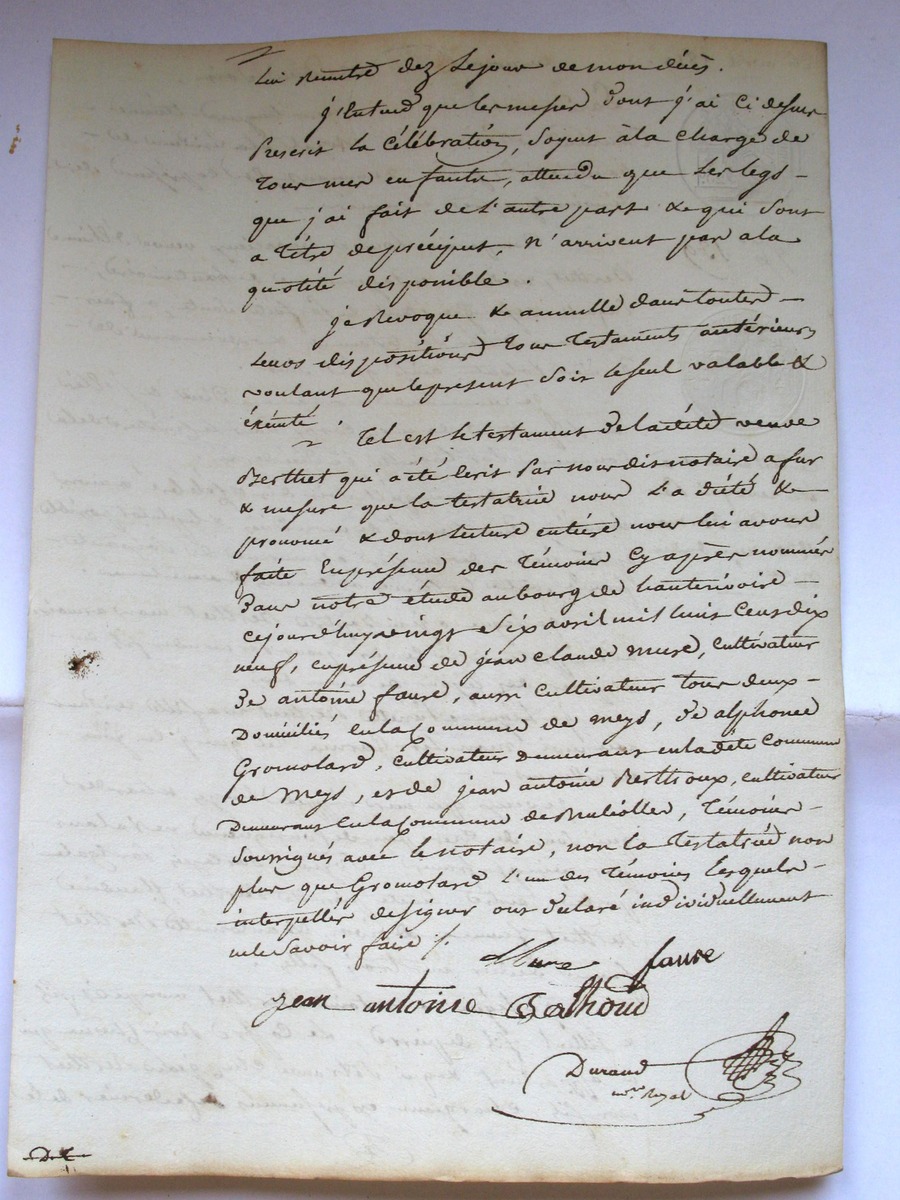 lui remettre dez le jour de mon décès.
j'Entend que les messes dont j'ai ci dessus
Prescrit la Célébration, soyent à la charge de
tous mes enfants, attendu que les legs
que j'ai fait de l'autre part & qui sont
a titre de préciput, n'arrivent pas a la
quotité disponible.
je Revoque & annulle dans toutes
leurs dispositions tous testaments antérieurs
voulant que le present soit le seul valable &
éxécuté.
Tel est le testament de la dite veuve
Berthet qui a été Ecrit Par nous dit notaire a fur
& mesure que la testatrice nous l'a dicté &
prononcé & dont lecture entière nous lui avons
faite En présence des témoins Cy après nommés
dans notre étude au bourg de hauterivoire
cejourd'huy vingt Six avril mil huit Cent dix
neuf, en présence de jean claude mure, cultivateur
De antoine faure, aussi Cultivateur tous deux
Domiciliés En la Commune de meys, de alphonce
Gromolard, cultivateur demeurant en la dite Commune
de Meys, et de jean antoine Berthoux, cultivateur
Demeurant En la Commune de , témoins
soussignés avec le notaire, non la testatrice non
plus que Gromolard l'un des témoins lesquels
interpellés de signer ont déclaré individuellement
ne le Savoir faire /.
Mure faure
jean antoine
Durand
nore Royal